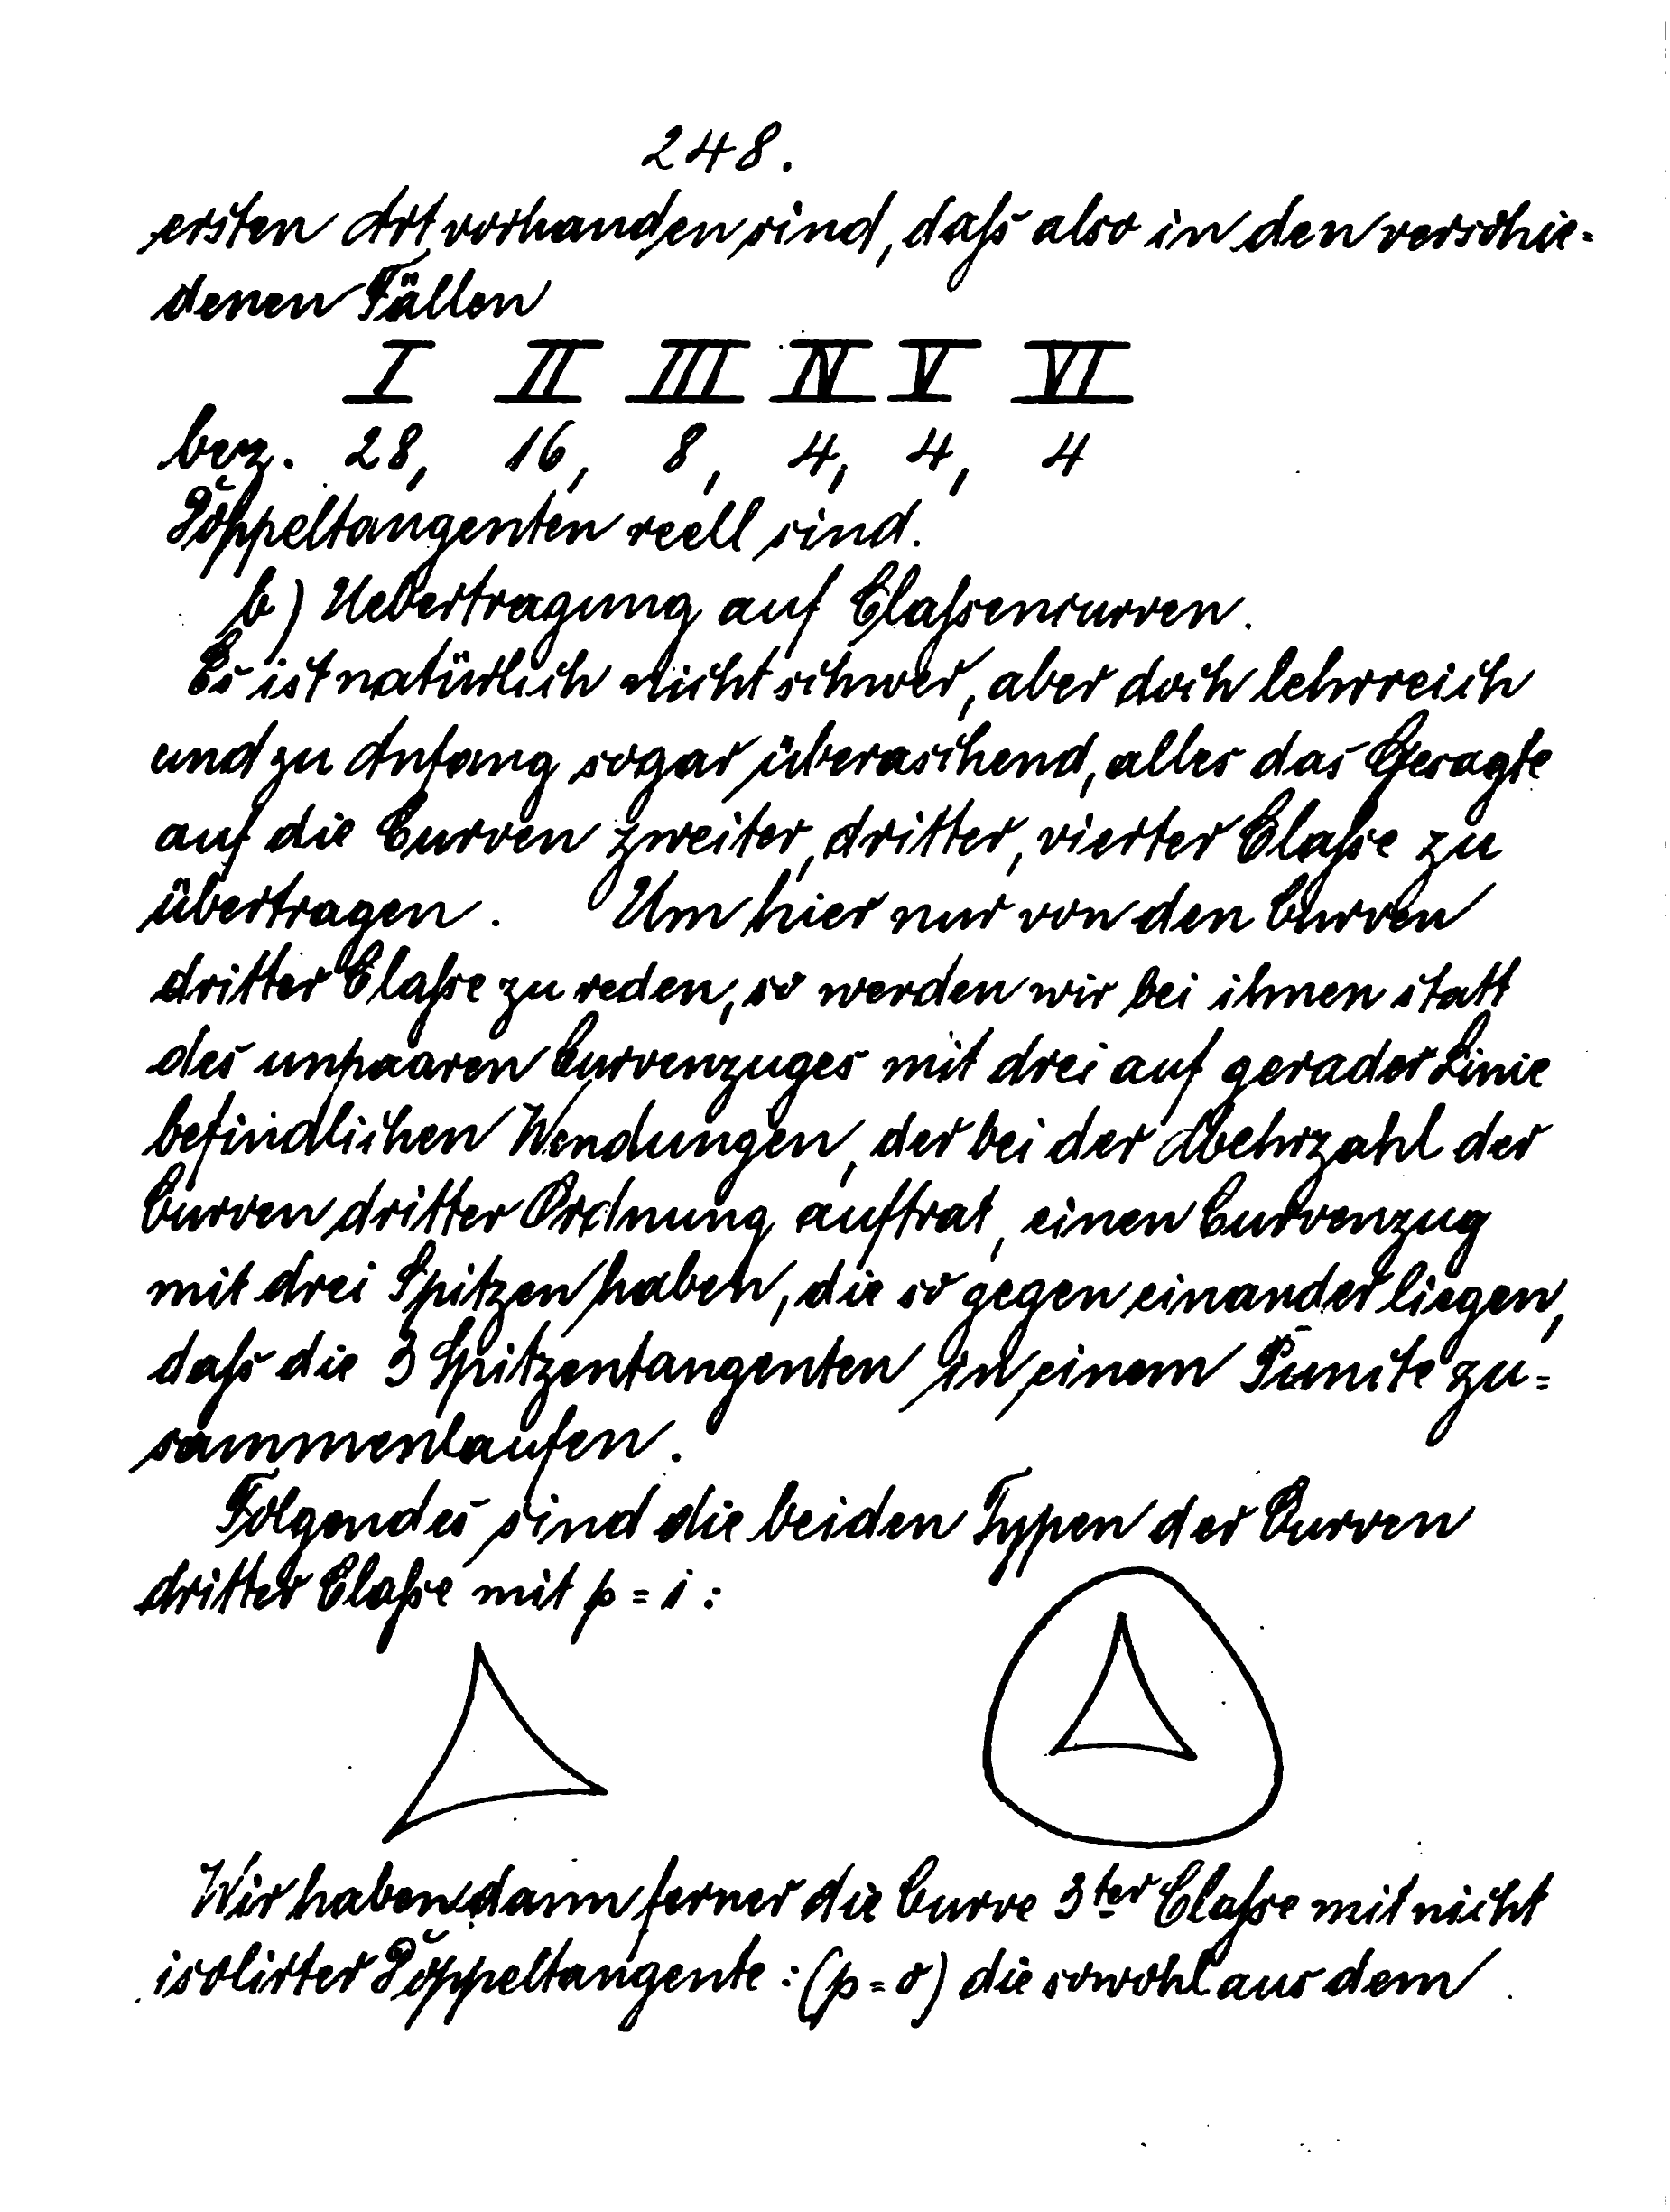 248.
ersten Art vorhanden sind, daß also in den verschie=
denen Fällen
I II III IV V VI
bez. 28, 16, 8, 4, 4, 4
Doppeltangenten reell sind.
b) Uebertragung auf Claßencurven.
Es ist natürlich nicht schwer, aber doch lehrreich
und zu Anfang sogar überaschend, alles das Gesagte
auf die Curven zweiter, dritter, vierter Claße zu
übertragen. Um hier nur von den Curven
dritter Claße zu reden, so werden wir bei ihnen statt
des unpaaren Curvenzuges mit drei auf gerader Linie
befindlichen Wendungen, der bei der Mehrzahl der
Curven dritter Ordnung auftrat, einen Curvenzug
mit drei Spitzen haben, die so gegen einander liegen,
daß die 3 Spitzentangenten in einem Puncte zu=
sammenlaufen.
Folgendes sind die beiden Typen der Curven
dritter Claße mit p = 1:
Wir haben dann ferner die Curve 3ter Claße mit nicht
isolirter Doppeltangente: (p = 0) die sowohl aus dem